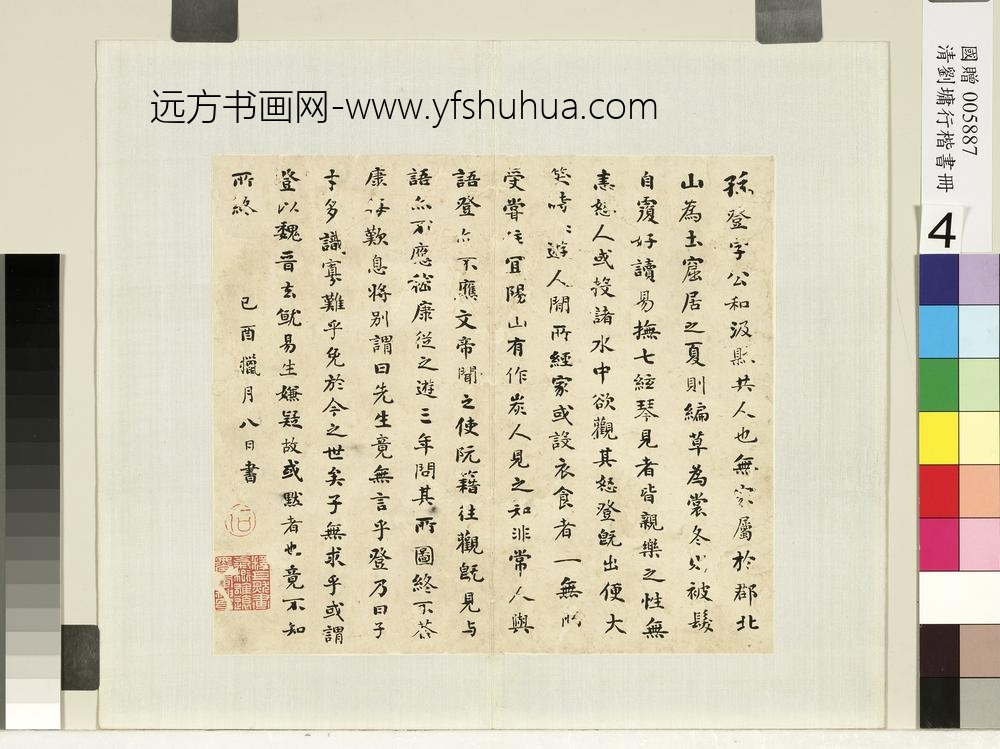 远方书画网-www.yfshuhua.com
孫登字公和汲縣共人也無家屬於郡北
山為土窟居之夏則編草為裳冬則被髮
自覆好讀易撫七絃琴見者皆親樂之性無
恚怒人或投諸水中欲觀其怒登既出便大
笑時時遊人間所經家或設衣食者一無所
受嘗住宜陽山有作炭人見之知非常人與
語登亦不應文帝聞之使阮籍往觀既見与
語亦不應嵇康從之遊三年問其所圖終不荅
康每歎息將別謂曰先生竟無言乎登乃曰子
才多識寡難乎免於今之世矣子無求乎或謂
登以魏晉去就易生嫌疑故或默者也竟不知
所終
己酉臘月八日書
國贈 005887
清劉墉行楷書冊
4